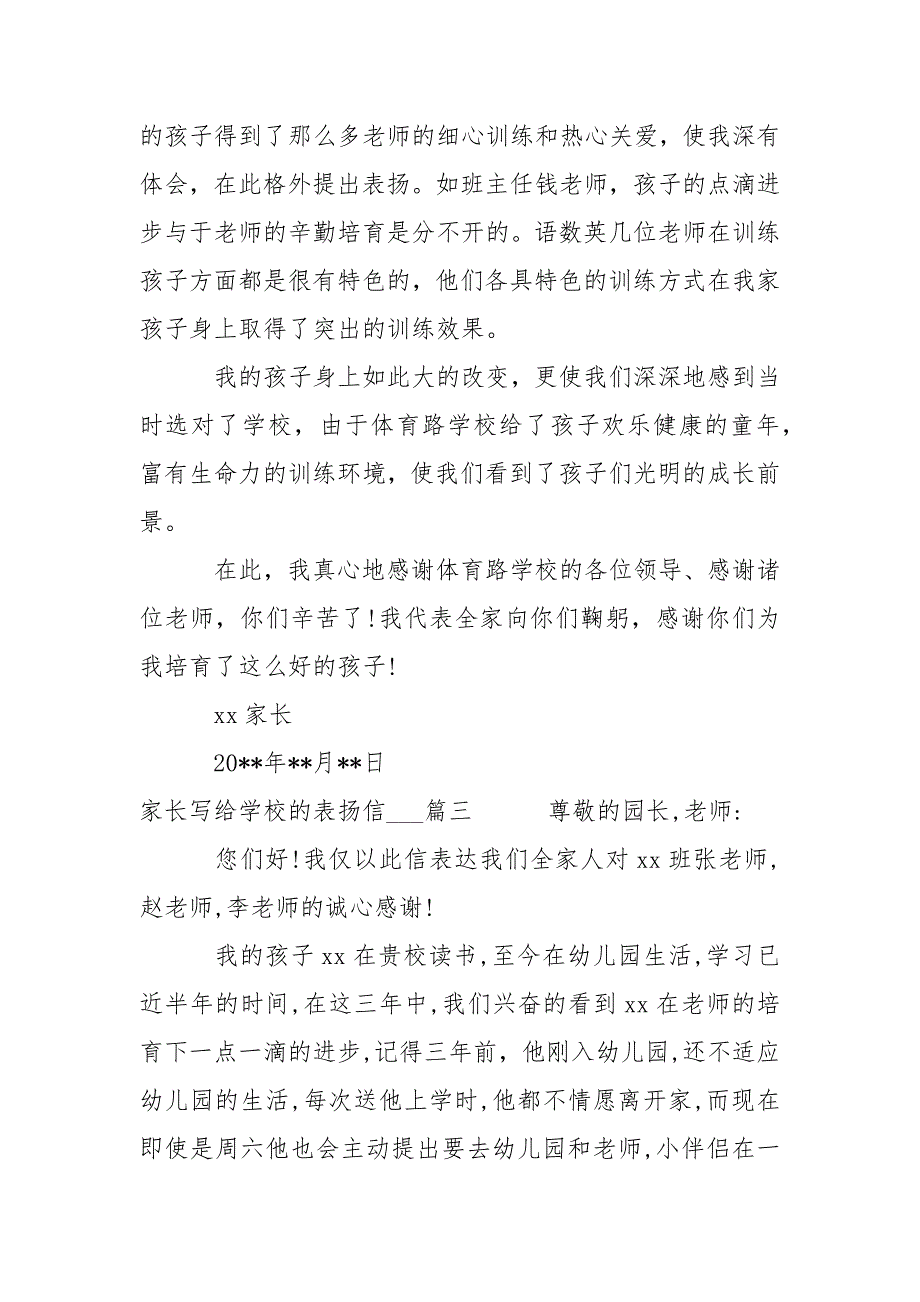 的孩子得到了那么多老师的细心训练和热心关爱，使我深有
体会，在此格外提出表扬。如班主任钱老师，孩子的点滴进
步与于老师的辛勤培育是分不开的。语数英几位老师在训练
孩子方面都是很有特色的，他们各具特色的训练方式在我家
孩子身上取得了突出的训练效果。
我的孩子身上如此大的改变，更使我们深深地感到当
时选对了学校，由于体育路学校给了孩子欢乐健康的童年，
富有生命力的训练环境，使我们看到了孩子们光明的成长前
景。
在此，我真心地感谢体育路学校的各位领导、感谢诸
位老师，你们辛苦了!我代表全家向你们鞠躬，感谢你们为
我培育了这么好的孩子!
xx 家长
20**年**月**日
家长写给学校的表扬信___篇三 尊敬的园长,老师:
您们好!我仅以此信表达我们全家人对 xx 班张老师,
赵老师,李老师的诚心感谢!
我的孩子 xx 在贵校读书,至今在幼儿园生活,学习已
近半年的时间,在这三年中,我们兴奋的看到 xx 在老师的培
育下一点一滴的进步,记得三年前，他刚入幼儿园,还不适应
幼儿园的生活,每次送他上学时,他都不情愿离开家,而现在
即使是周六他也会主动提出要去幼儿园和老师,小伴侣在一